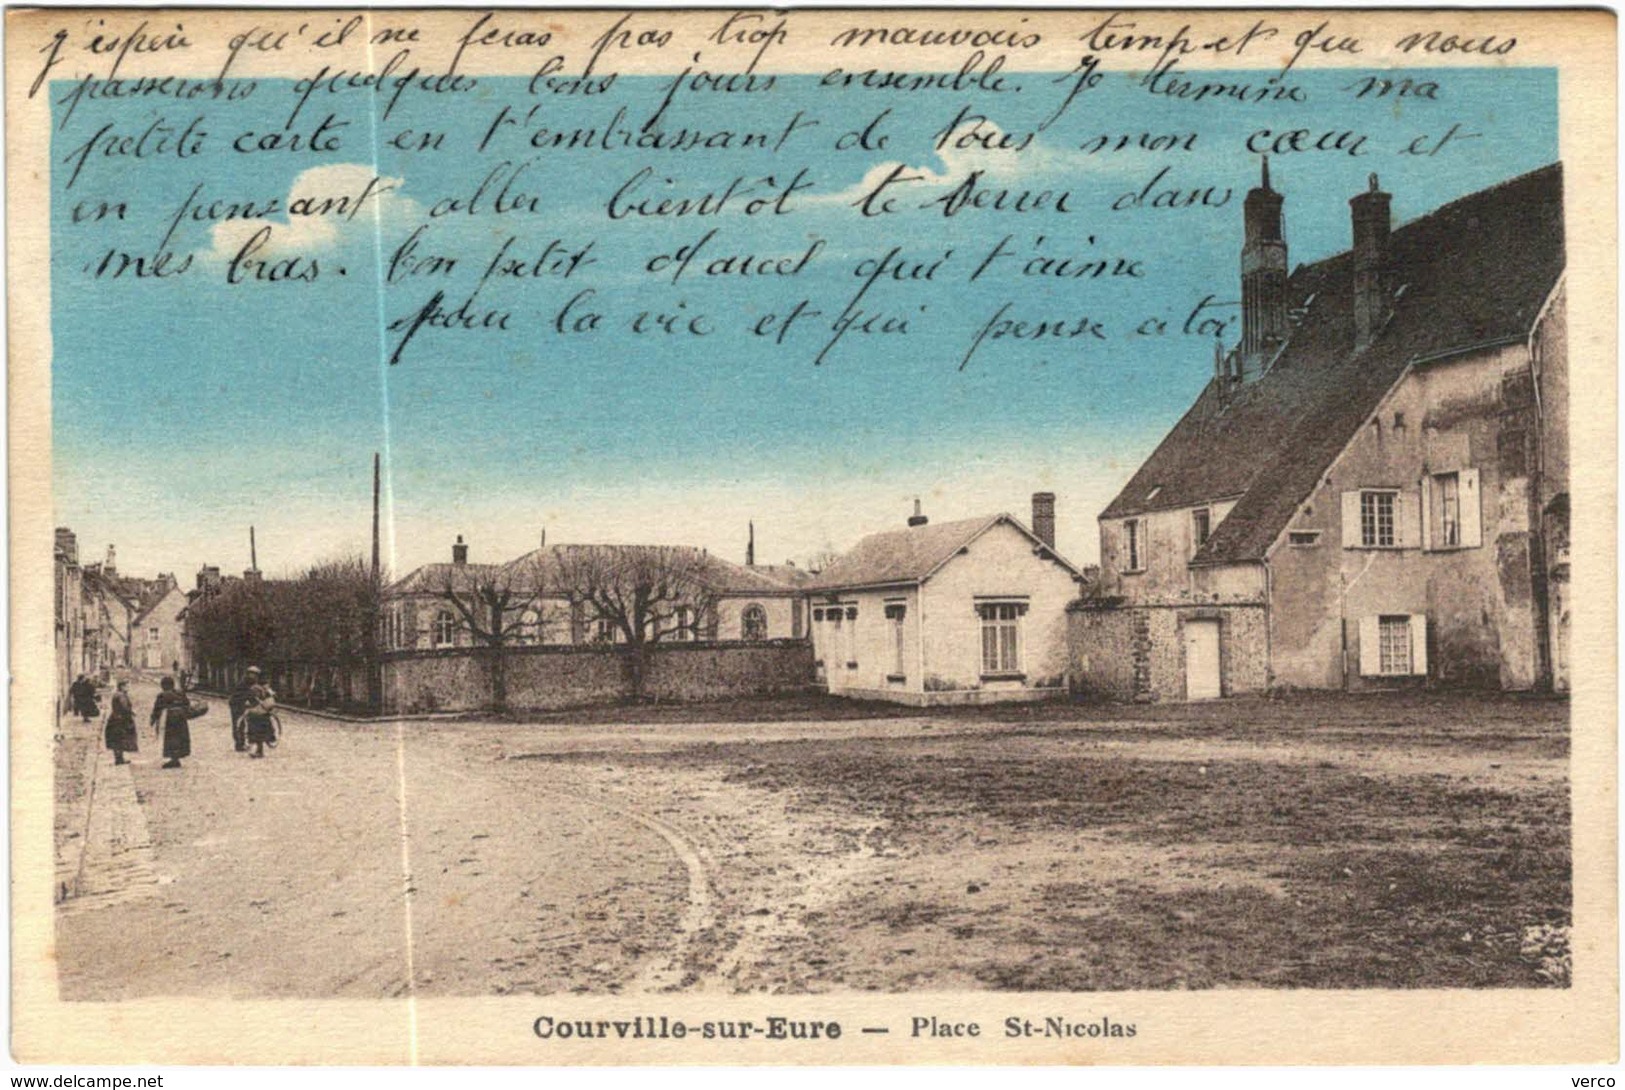 j'espère qu'il ne feras pas trop mauvais temp et que nous
passerons quelques bons jours ensemble. Je termine ma
petite carte en t'embrassant de tous mon cœur et
en pensant aller bientôt te serrer dans
mes bras. ton petit Marcel qui t'aime
pour la vie et qui pense a toi
Courville-sur-Eure — Place St-Nicolas
delcampe.net
verco